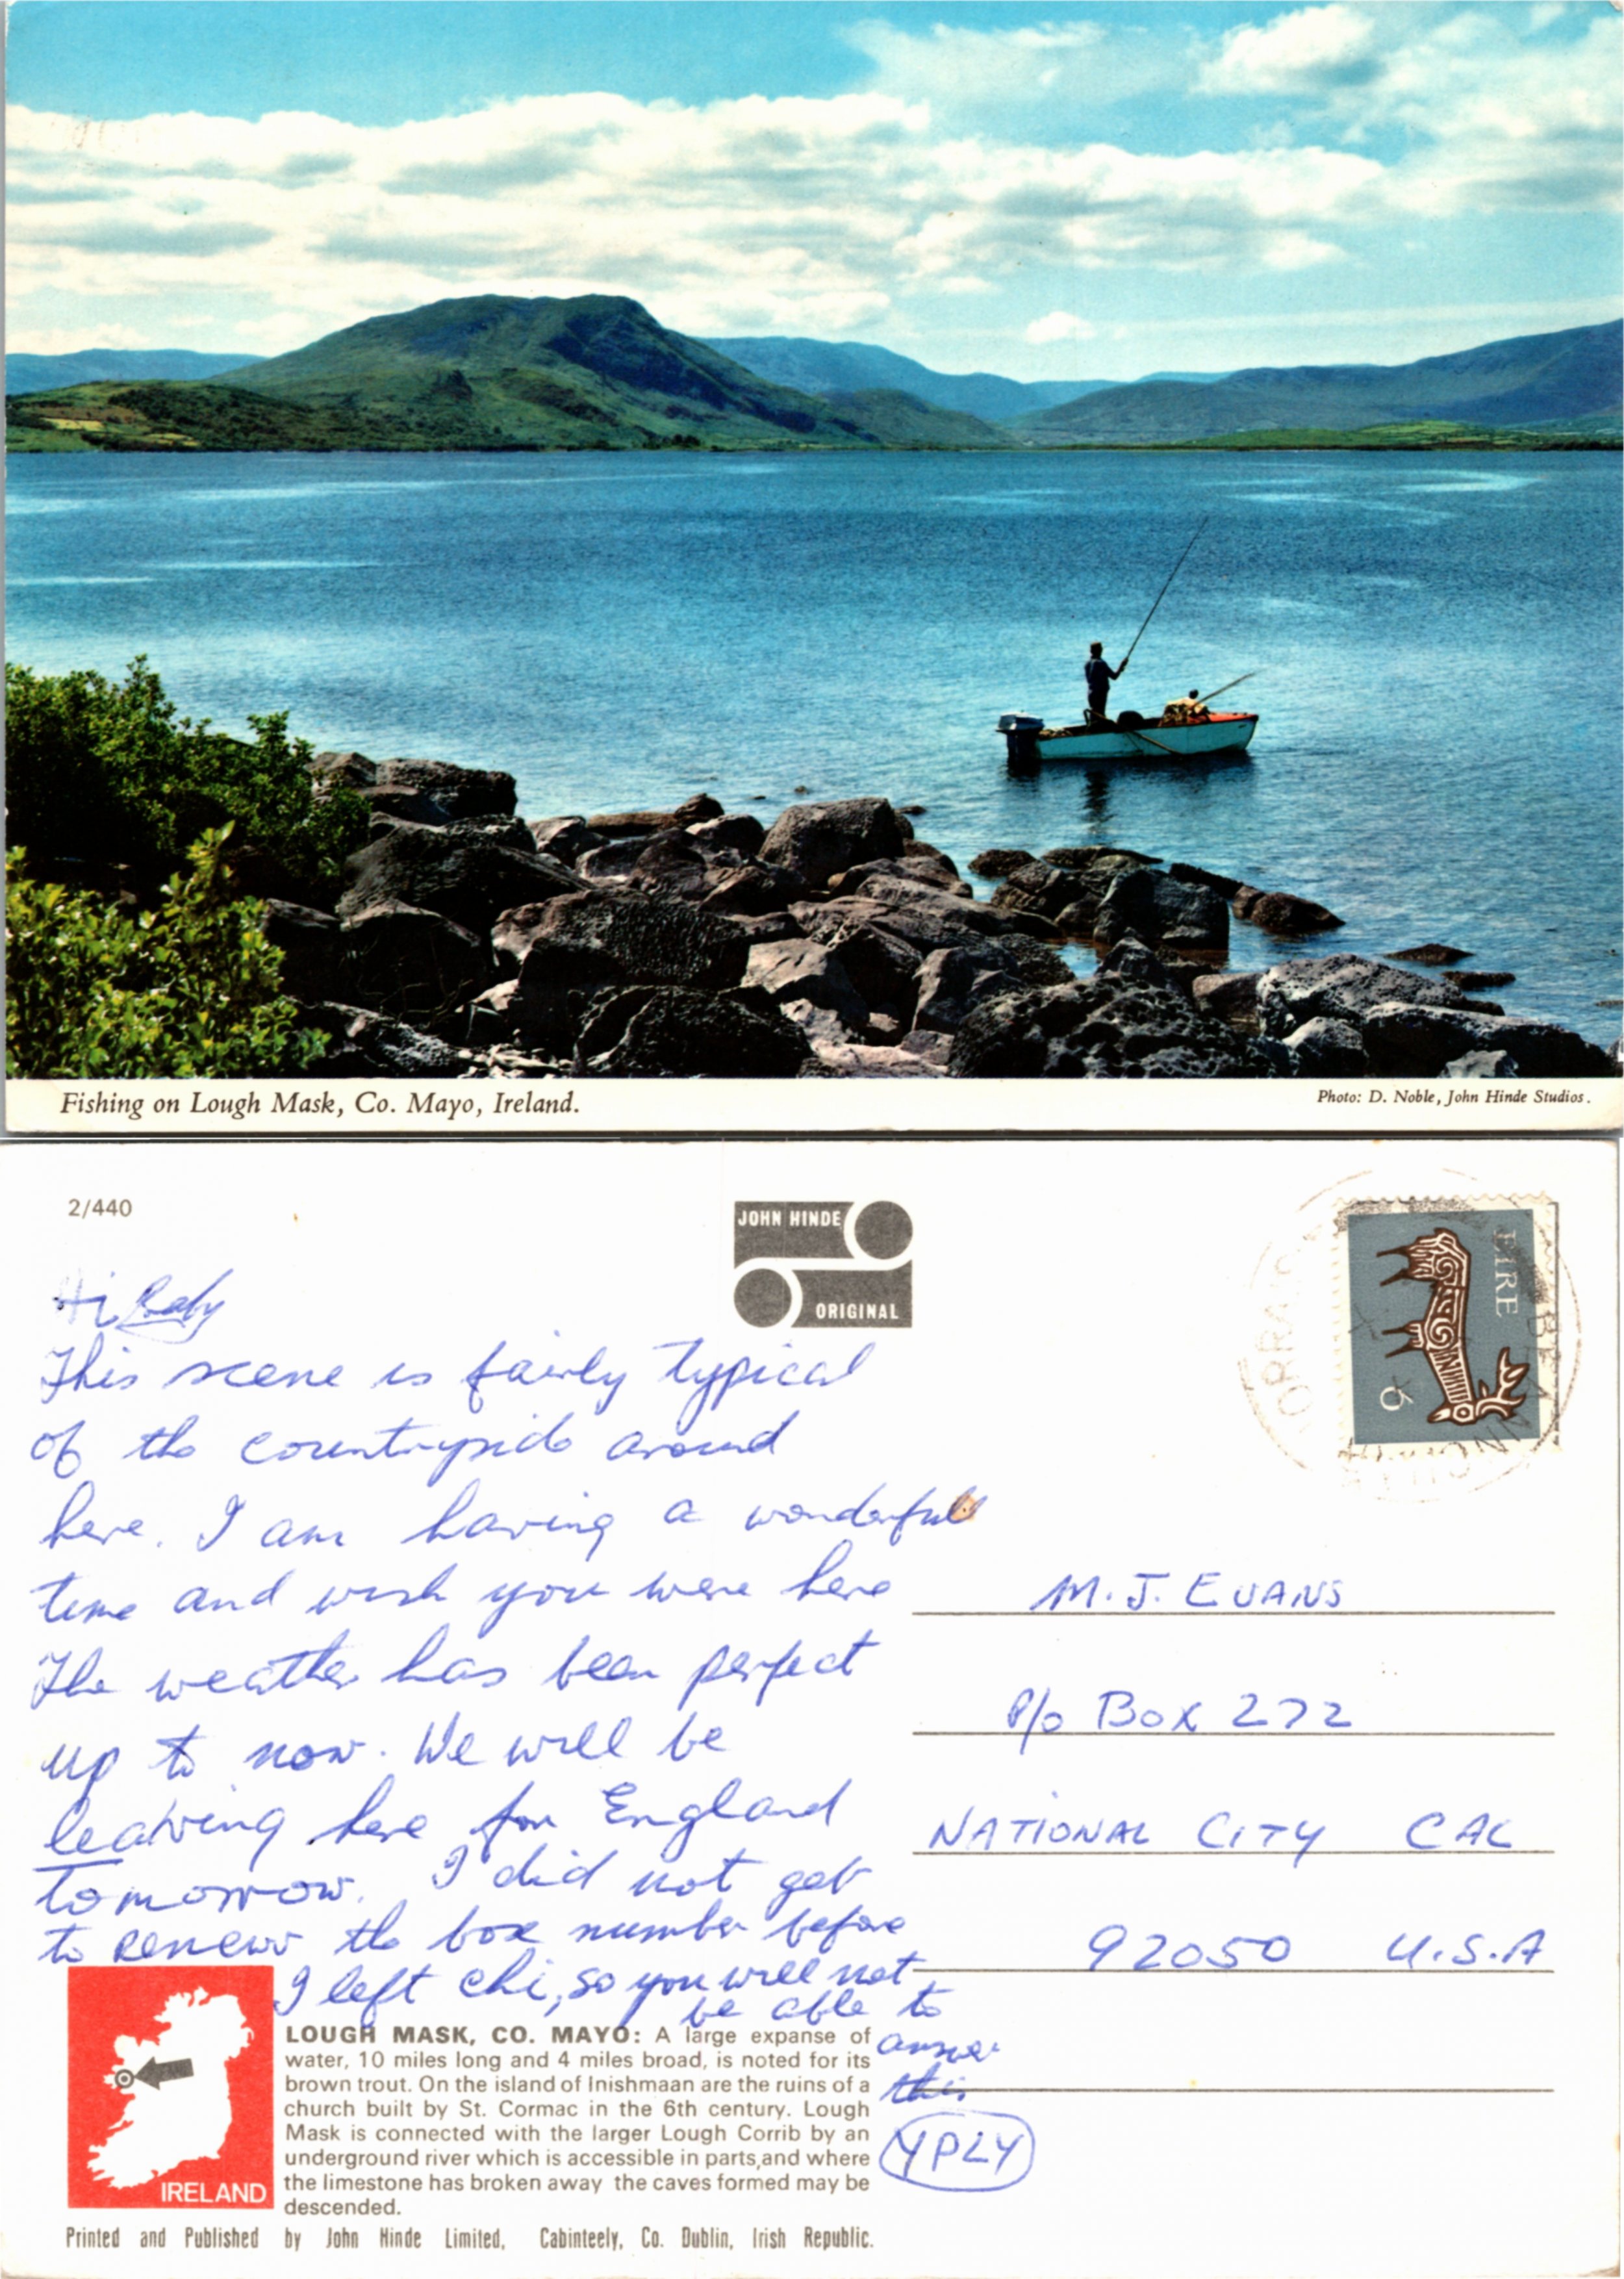 Fishing on Lough Mask, Co. Mayo, Ireland.
Photo: D. Noble, John Hinde Studios.
2/440
JOHN HINDE
ORIGINAL
EIRE
6
Hi Baby
This scene is fairly typical
of the countryside around
here. I am having a wonderful
time and wish you were here
The weather has been perfect
up to now. We will be
leaving here for England
tomorrow. I did not get
to renew the box number before
I left Chi, so you will not
be able to
answer
this
YPLY
M. J. EVANS
P/o Box 272
NATIONAL CITY CAL
92050 U.S.A
LOUGH MASK, CO. MAYO: A large expanse of
water, 10 miles long and 4 miles broad, is noted for its
brown trout. On the island of Inishmaan are the ruins of a
church built by St. Cormac in the 6th century. Lough
Mask is connected with the larger Lough Corrib by an
underground river which is accessible in parts,and where
the limestone has broken away the caves formed may be
descended.
IRELAND
Printed and Published by John Hinde Limited, Cabinteely, Co. Dublin, Irish Republic.